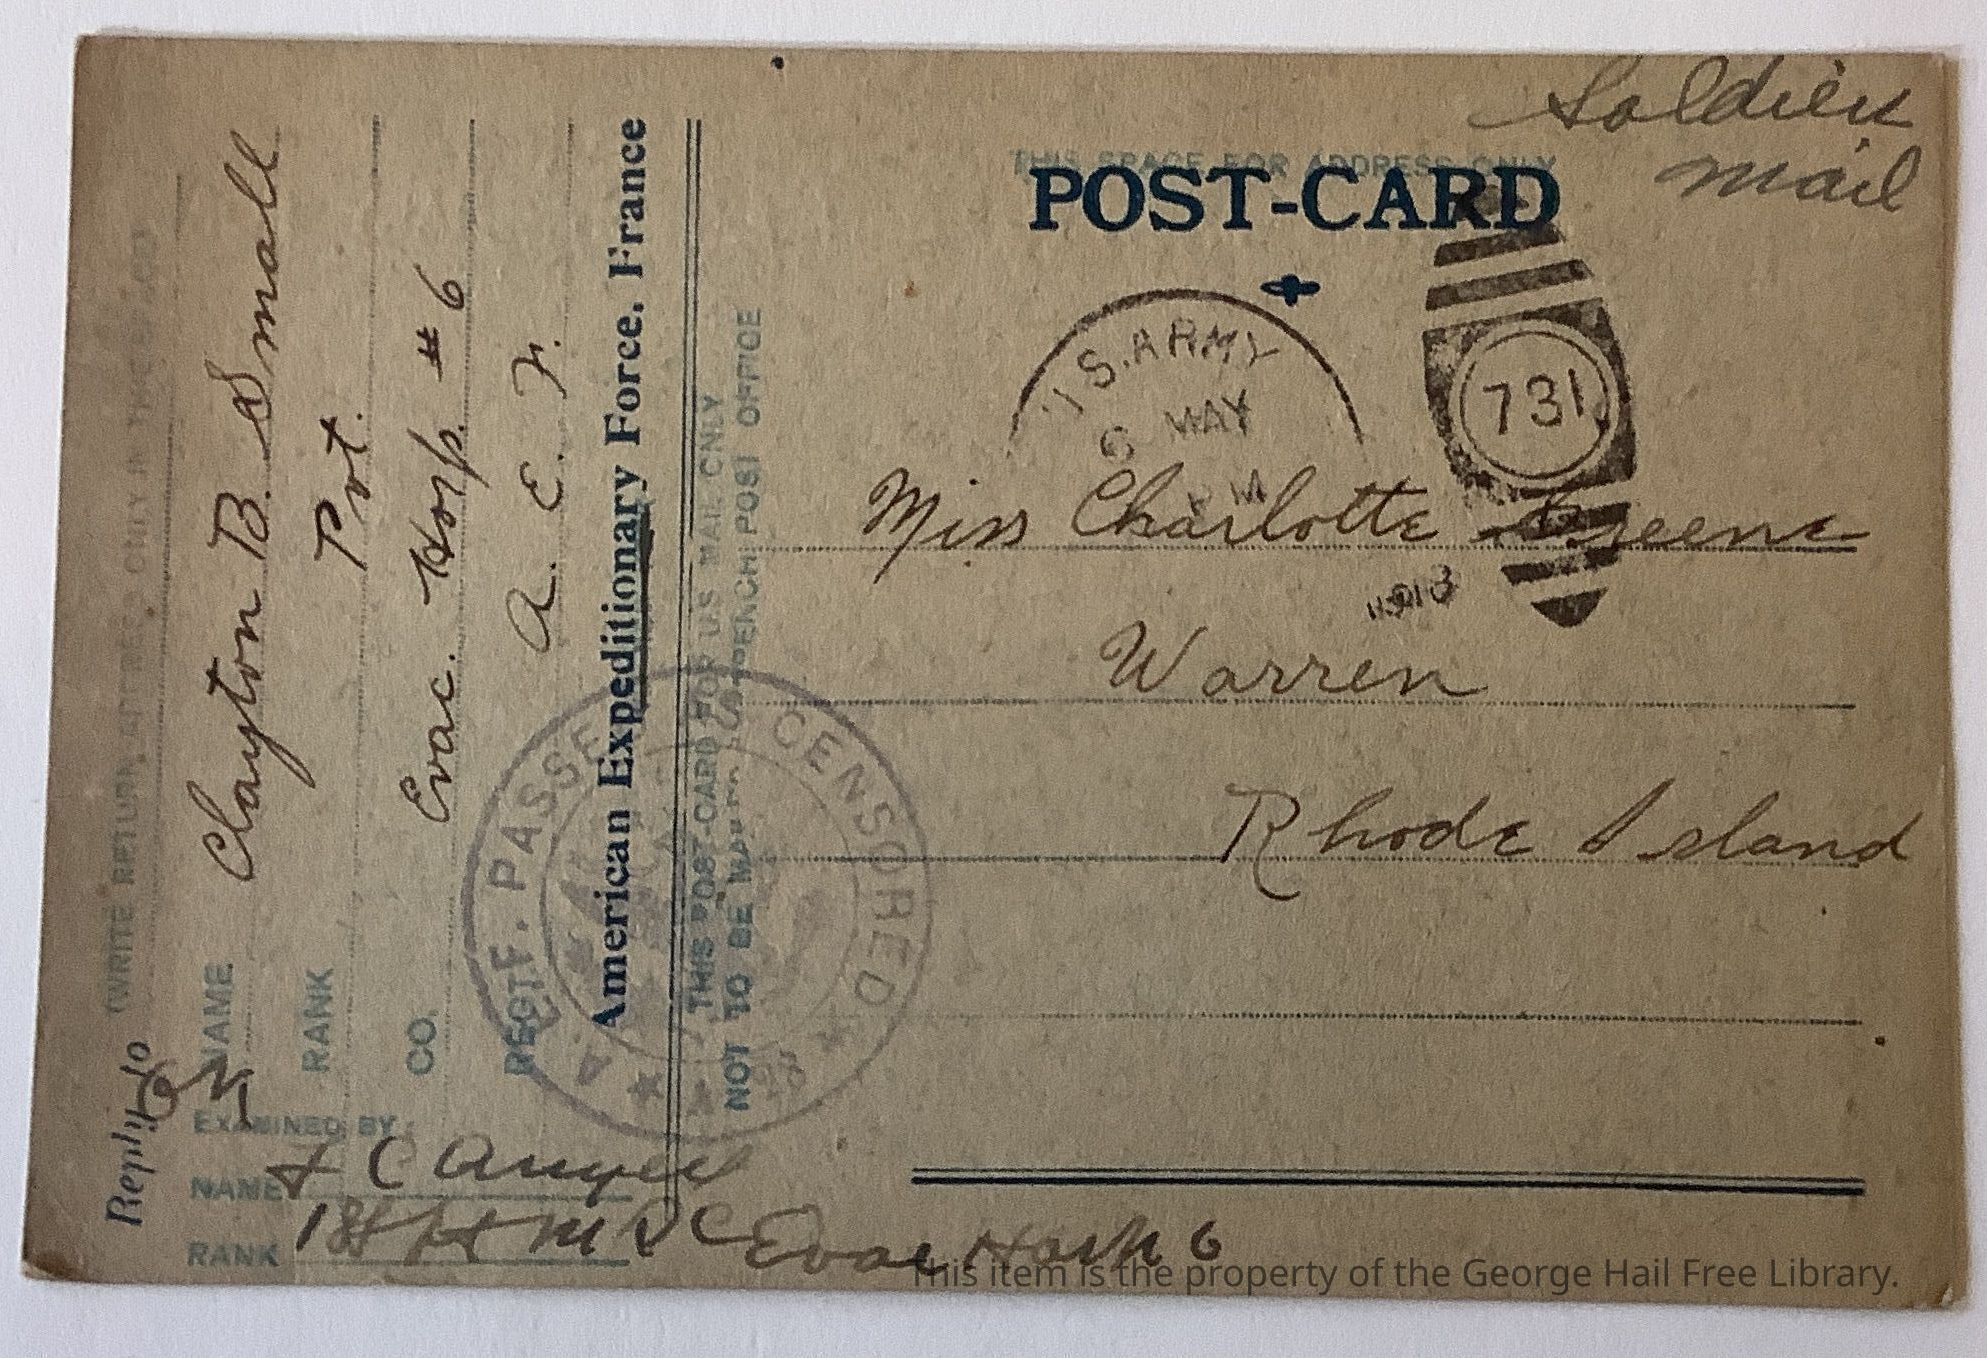 Soldier
mail
THIS SPACE FOR ADDRESS ONLY
POST-CARD
U.S. ARMY
6 MAY
PM
1918
731
Miss Charlotte Greene
Warren
Rhode Island
(WRITE RETURN ADDRESS ONLY IN THIS SPACE)
Reply to
NAME Clayton B. Small
RANK Pvt.
CO. Evac. Hosp. #6
REGT. A. E. F.
American Expeditionary Force, France
THIS POST-CARD FOR US MAIL ONLY
NOT TO BE MAILED IN FRENCH POST OFFICE
A.E.F. PASSED CENSORED
OK
EXAMINED BY:
NAME F C Angell
RANK 1st Lt M R C Evac Hosp 6
This item is the property of the George Hail Free Library.